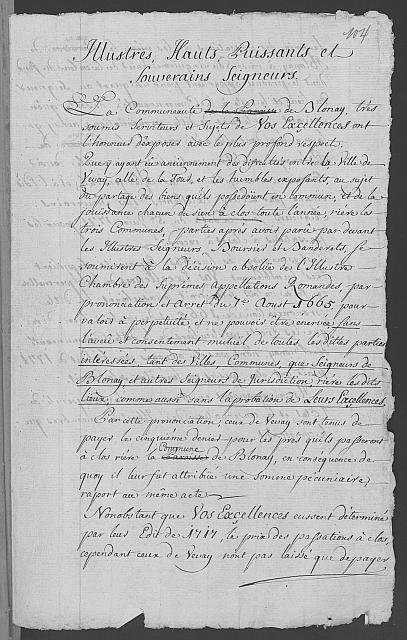 104
Illustres, Hauts, Puissants et
Souverains Seigneurs.
La Communauté de la Paroisse de Blonay, tres
soumis Serviteurs et Sujets de Vos Excellences ont
l'honneur d'exposer avec le plus profond respect.
Que y ayant eu anciennement des difficultés entre la Ville de
Vevay, celle de la Tour, et les humbles exposants, au sujet
du partage des biens qu'ils possedoient en commun, et de la
jouissance chacun du sien à clos toute l'année, riere les
trois Communes, parties apres avoir parié par devant
les Illustres Seigneurs Boursier et Banderets, se
soumirent à la decision absolue de l'Illustre
Chambre des Suprémes Appellations Romandes, par
prononciation et arret du 7e Aoust 1665 pour
valoir à perpetuité, et ne pouvoir être enervée sans
l'aveu et consentement mutuel de toutes les dittes parties
interessées, tant des Villes, Communes, que Seigneurs de
Blonay et autres Seigneurs de Jurisdiction, riere les dits
lieux, comme aussi sans l'aprobation de Leurs Excellences.
Par cette prononciation, ceux de Vevay sont tenus de
payer le cinquieme denier pour les prés qu'ils passeront
Commune
à clos riere la Paroisse de Blonay, en consequence de
quoy il leur fut attribuée une somme pecuniaire,
raport au même acte.
Nonobstant que Vos Excellences eussent déterminé
par leur Edit de 1717, le prix des passations à clos,
cependant ceux de Vevay n'ont pas laissé que de payer